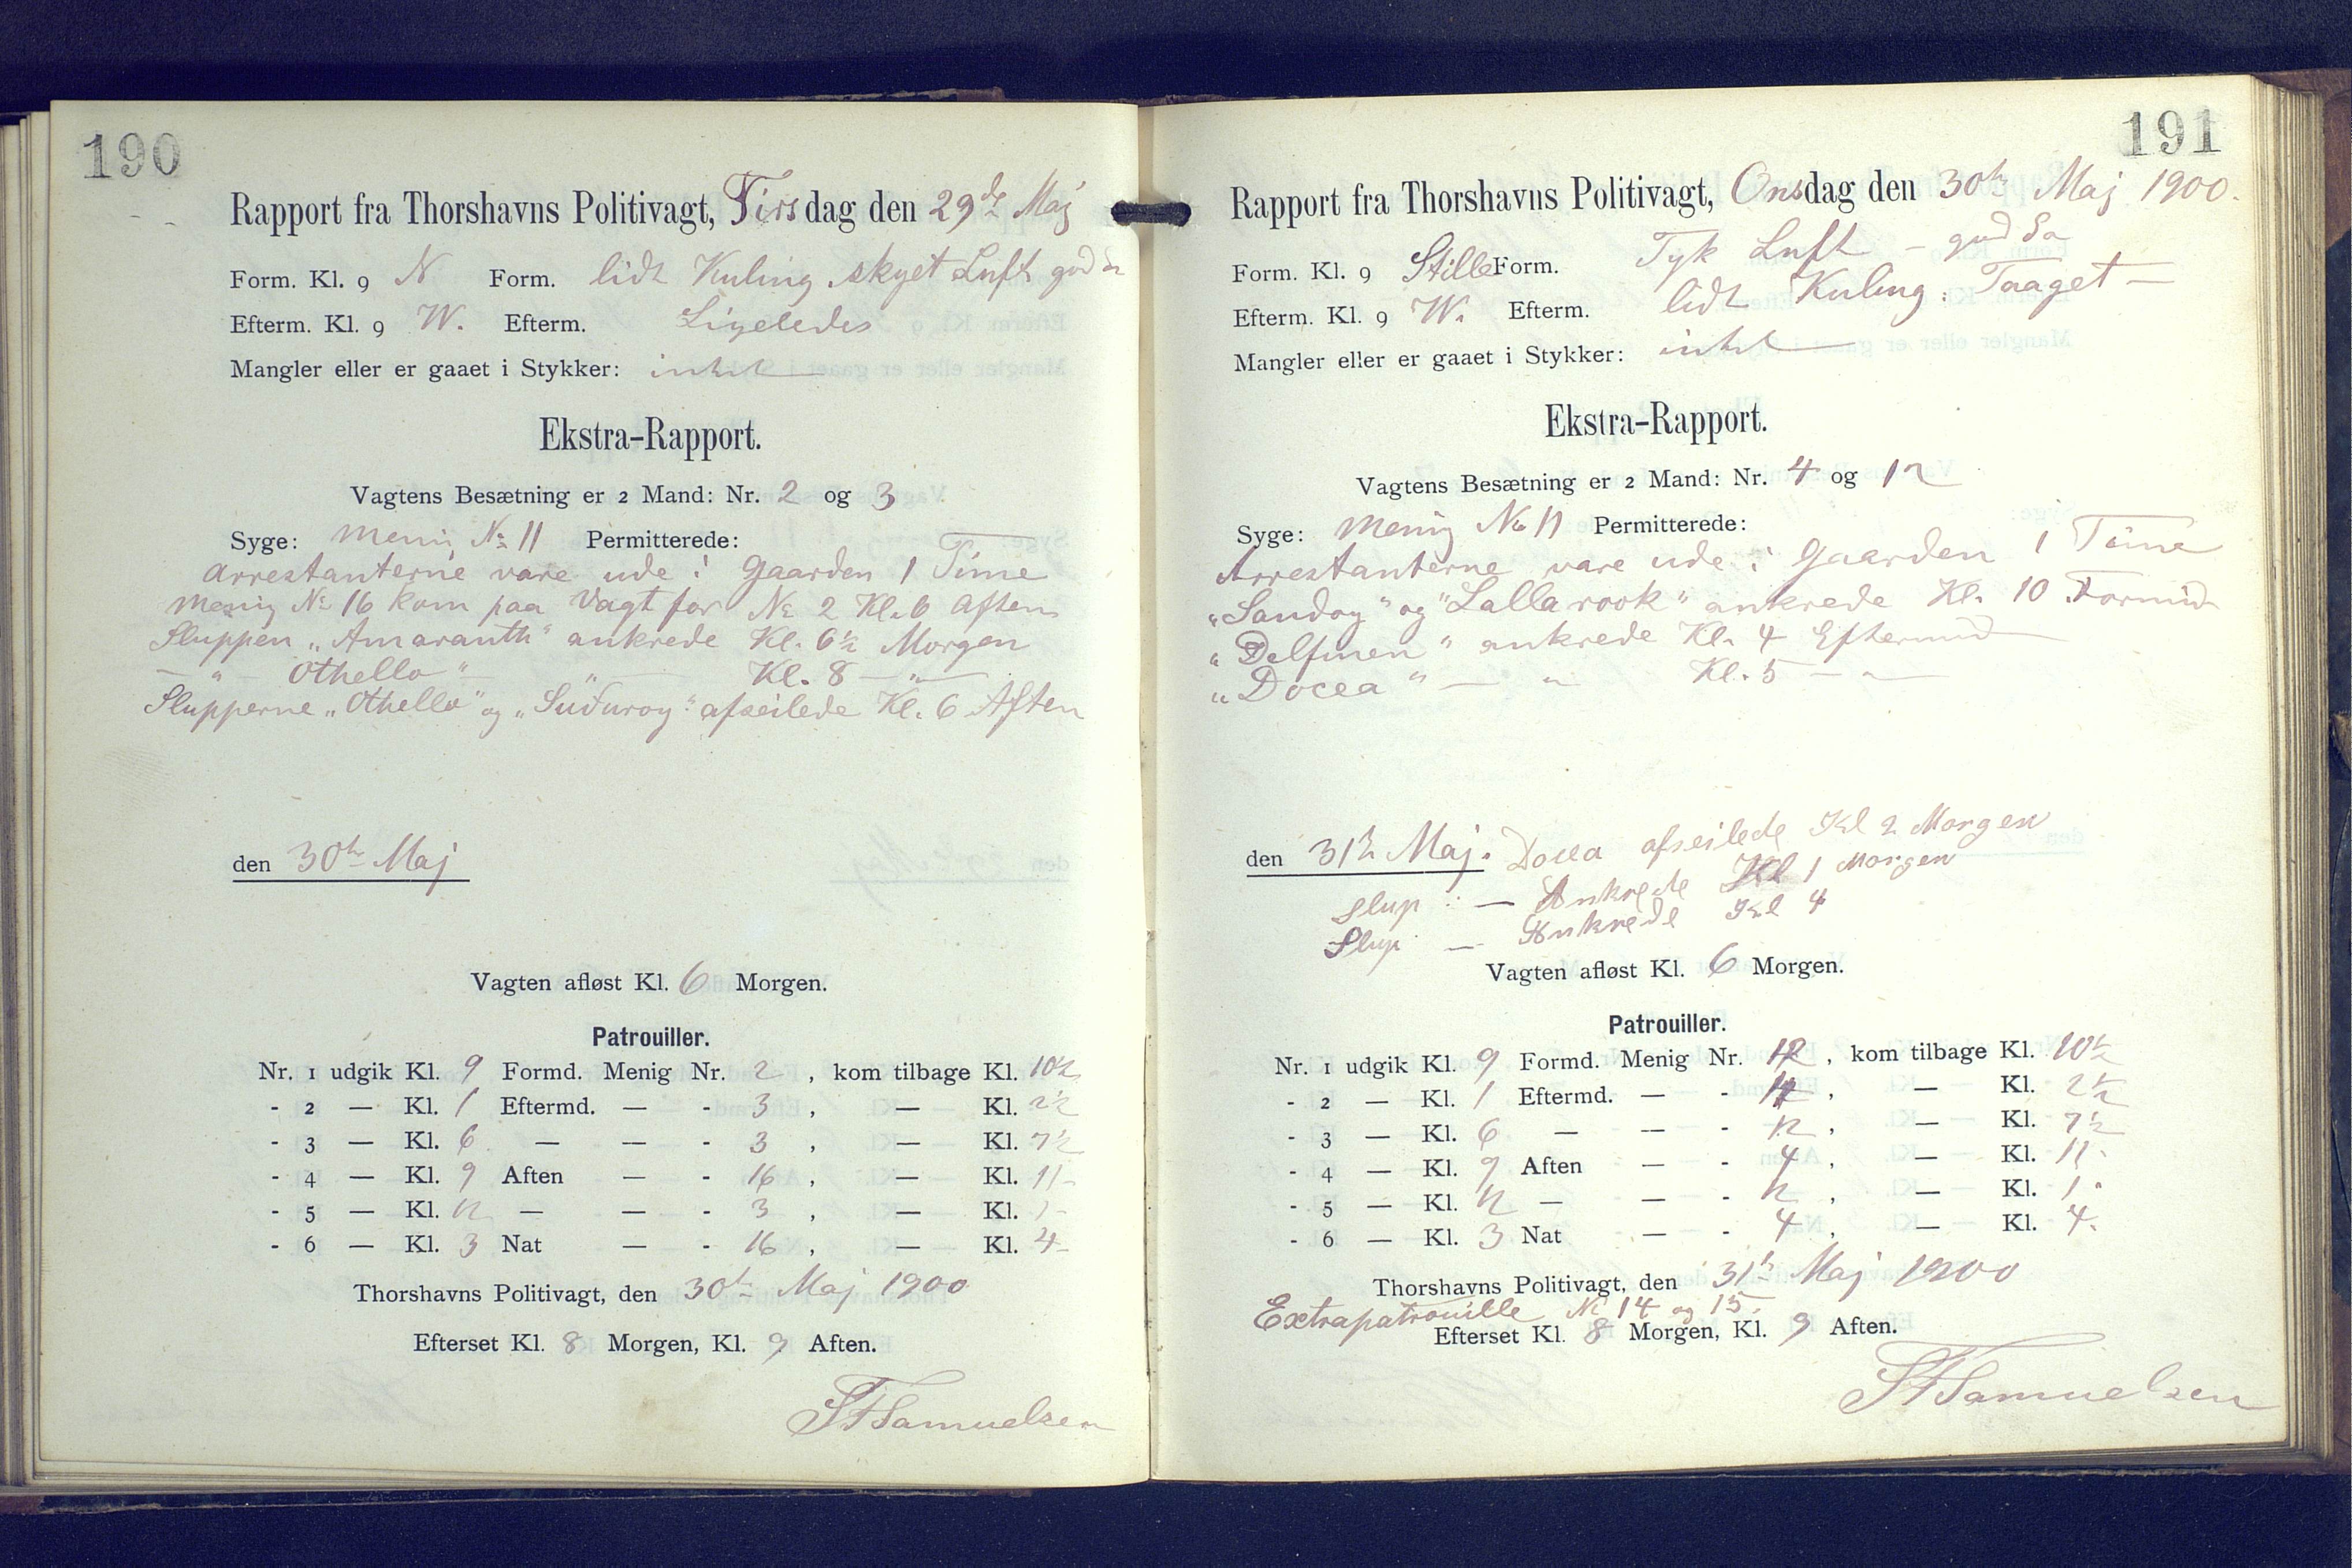 190
Rapport fra Thorshavns Politivagt, Tirsdag den 29de Maj
Form. Kl. 9 N Form. lidt Kuling skyet Luft god
Efterm. Kl. 9 W. Efterm. Ligeledes
Mangler eller er gaaet i Stykker: intet
Ekstra-Rapport.
Vagtens Besætning er 2 Mand: Nr. 2 og 3
Syge: Menig No 11 Permitterede:
Arrestanterne vare ude i Gaarden 1 Time
Menig No 16 kom paa Vagt for No 2 Kl. 6 Aften
Sluppen „Amaranth“ ankrede Kl. 6½ Morgen
— „ — Othello“ — „ — Kl. 8 — „ —
Slupperne „Othello“ og „Suduroy“ afseilede Kl. 6 Aften
den 30te Maj
Vagten afløst Kl. 6 Morgen.
Patrouiller.
Nr. 1 udgik Kl. 9 Formd. Menig Nr. 2, kom tilbage Kl. 10½
- 2 — Kl. 1 Eftermd. — - 3, — Kl. 2½
- 3 — Kl. 6 — — - 3, — Kl. 7½
- 4 — Kl. 9 Aften — - 16, — Kl. 11
- 5 — Kl. 12 — — - 3, — Kl. 1
- 6 — Kl. 3 Nat — - 16, — Kl. 4
Thorshavns Politivagt, den 30te Maj 1900
Efterset Kl. 8 Morgen, Kl. 9 Aften.
SFSamuelsen
191
Rapport fra Thorshavns Politivagt, Onsdag den 30te Maj 1900.
Form. Kl. 9 Stille Form. Tyk Luft — god
Efterm. Kl. 9 W. Efterm. lidt Kuling. Taaget —
Mangler eller er gaaet i Stykker: intet
Ekstra-Rapport.
Vagtens Besætning er 2 Mand: Nr. 4 og 12
Syge: Menig No 11 Permitterede:
Arrestanterne vare ude i Gaarden 1 Time
„Sandoy“ og „Lalla rook“ ankrede Kl. 10 Formid
„Delfinen“ ankrede Kl. 4 Eftermid
„Docea“ — „ — Kl. 5 — „ —
den 31te Maj. Docea afseilede Kl 2 Morgen
Slup — Ankrede Kl 1 Morgen
Slup — Ankrede Kl 4
Vagten afløst Kl. 6 Morgen.
Patrouiller.
Nr. 1 udgik Kl. 9 Formd. Menig Nr. 12, kom tilbage Kl. 10½
- 2 — Kl. 1 Eftermd. — - 4, — Kl. 2½
- 3 — Kl. 6 — — - 12, — Kl. 7½
- 4 — Kl. 9 Aften — - 4, — Kl. 11
- 5 — Kl. 12 — — - 12, — Kl. 1
- 6 — Kl. 3 Nat — - 4, — Kl. 4.
Thorshavns Politivagt, den 31te Maj 1900
Extrapatrouille No 14 og 15.
Efterset Kl. 8 Morgen, Kl. 9 Aften.
SFSamuelsen